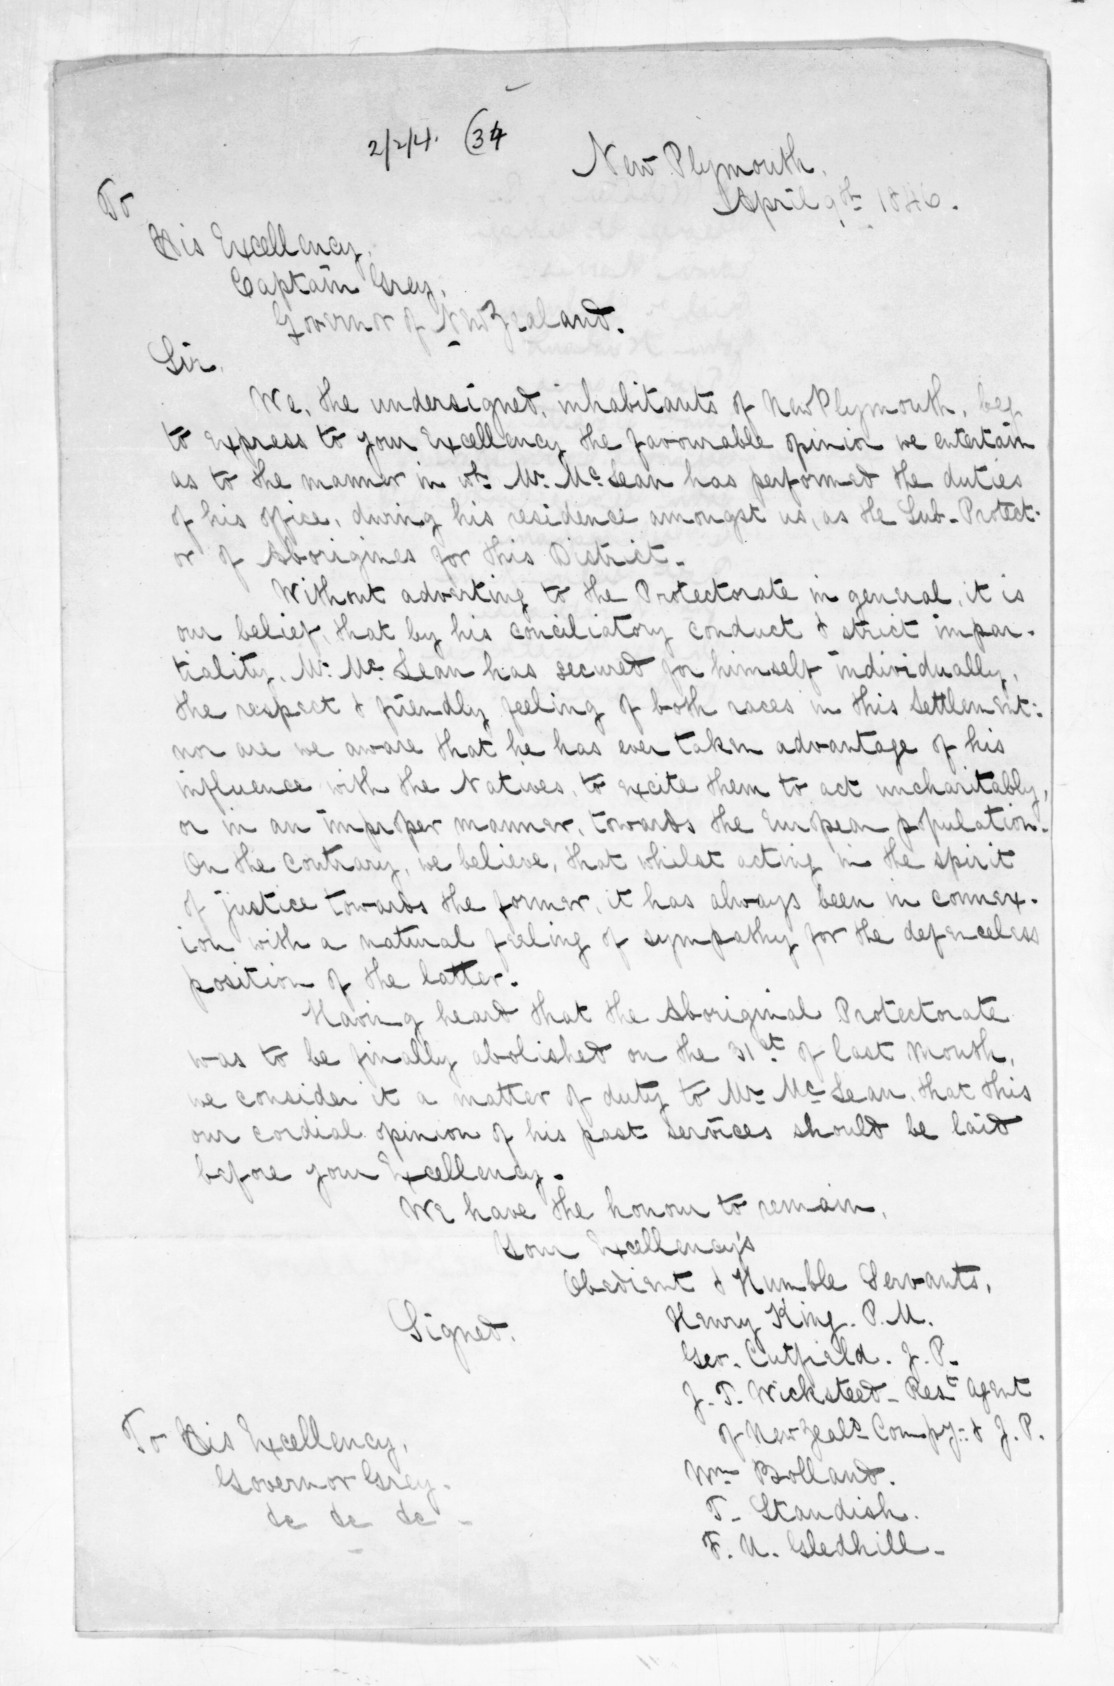 2/2/4. (34
New Plymouth.
April 9th 1846.
To
His Excellency,
Captain Grey,
Governor of New Zealand.
Sir,
We, the undersigned, inhabitants of New Plymouth, beg
to express to your Excellency the favourable opinion we entertain
as to the manner in wh. Mr. McLean has performed the duties
of his office, during his residence amongst us, as the Sub-Protect-
or of Aborigines for this District.
Without adverting to the Protectorate in general, it is
our belief, that by his conciliatory conduct & strict impar-
tiality, Mr. McLean has secured for himself individually,
the respect & friendly feeling of both races in this Settlement:
nor are we aware that he has ever taken advantage of his
influence with the Natives, to excite them to act uncharitably,
or in an improper manner, towards the European population.
On the contrary, we believe, that whilst acting in the spirit
of justice towards the former, it has always been in connex-
ion with a natural feeling of sympathy for the defenceless
position of the latter.
Having heard that the Aboriginal Protectorate
was to be finally abolished on the 31st of last Month,
we consider it a matter of duty to Mr. McLean, that this
our cordial opinion of his past services should be laid
before your Excellency.
We have the honour to remain,
Your Excellency's
Obedient & Humble Servants,
Signed.
Henry King. P.M.
Geo. Cutfield. J.P.
J. T. Wicksteed - Rest. Agent
of New Zeald. Compy: & J.P.
Wm Bolland.
T. Standish.
F. U. Gledhill -
To His Excellency,
Governor Grey.
&c &c &c -